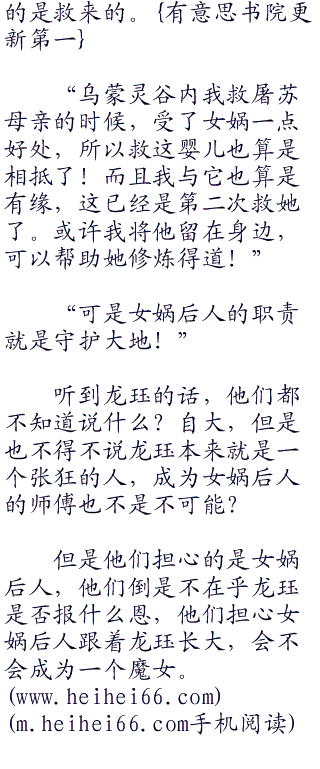 的是救来的。{有意思书院更
新第一}
“乌蒙灵谷内我救屠苏
母亲的时候，受了女娲一点
好处，所以救这婴儿也算是
相抵了！而且我与它也算是
有缘，这已经是第二次救她
了。或许我将他留在身边，
可以帮助她修炼得道！”
“可是女娲后人的职责
就是守护大地！”
听到龙珏的话，他们都
不知道说什么？自大，但是
也不得不说龙珏本来就是一
个张狂的人，成为女娲后人
的师傅也不是不可能？
但是他们担心的是女娲
后人，他们倒是不在乎龙珏
是否报什么恩，他们担心女
娲后人跟着龙珏长大，会不
会成为一个魔女。
(www.heihei66.com)
(m.heihei66.com手机阅读)